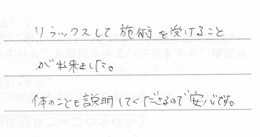 リラックスして施術を受けること
が出来ました。
体のことも説明してくださるので安心です。